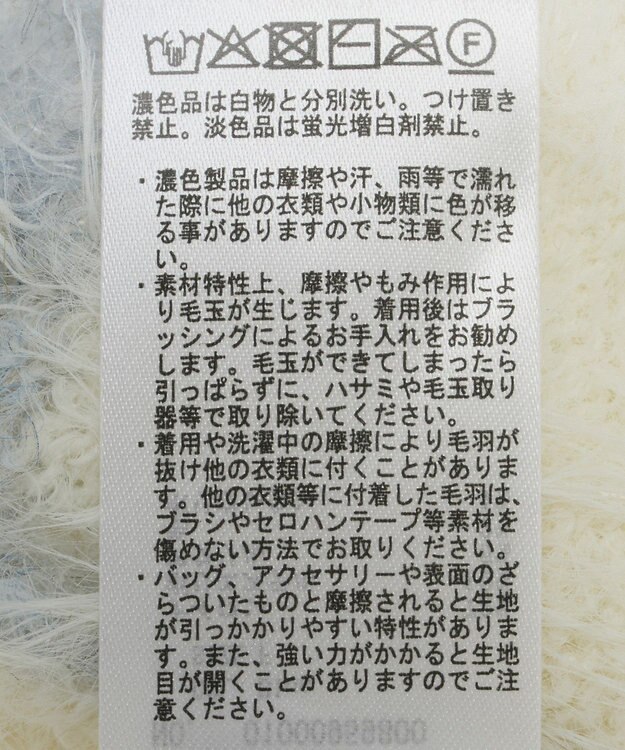 F
濃色品は白物と分別洗い。つけ置き
禁止。淡色品は蛍光増白剤禁止。
・濃色製品は摩擦や汗、雨等で濡れ
た際に他の衣類や小物類に色が移
る事がありますのでご注意くださ
い。
・素材特性上、摩擦やもみ作用によ
り毛玉が生じます。着用後はブラ
ッシングによるお手入れをお勧め
します。毛玉ができてしまったら
引っぱらずに、ハサミや毛玉取り
器等で取り除いてください。
・着用や洗濯中の摩擦により毛羽が
抜け他の衣類に付くことがありま
す。他の衣類等に付着した毛羽は、
ブラシやセロハンテープ等素材を
傷めない方法でお取りください。
・バッグ、アクセサリーや表面のざ
らついたものと摩擦されると生地
が引っかかりやすい特性がありま
す。また、強い力がかかると生地
目が開くことがありますのでご注
意ください。